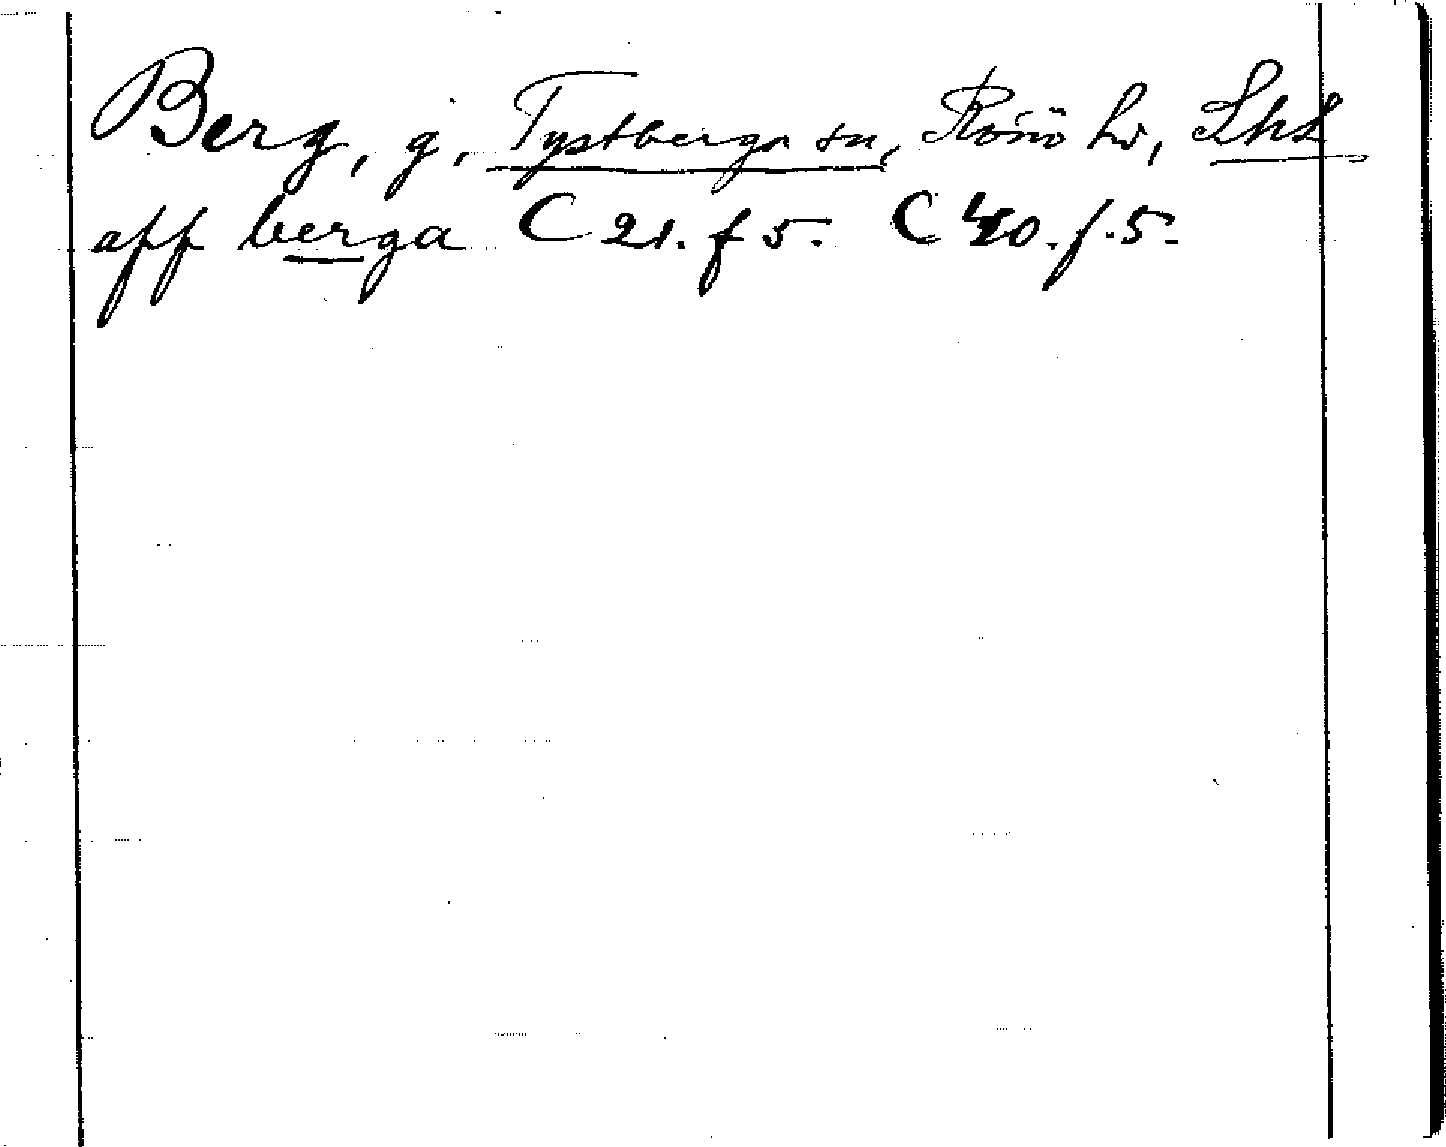 Berg, g, Tystberga sn, Rönö hd, Shl
aff berga C 21. f 5. C 40. f. 5.